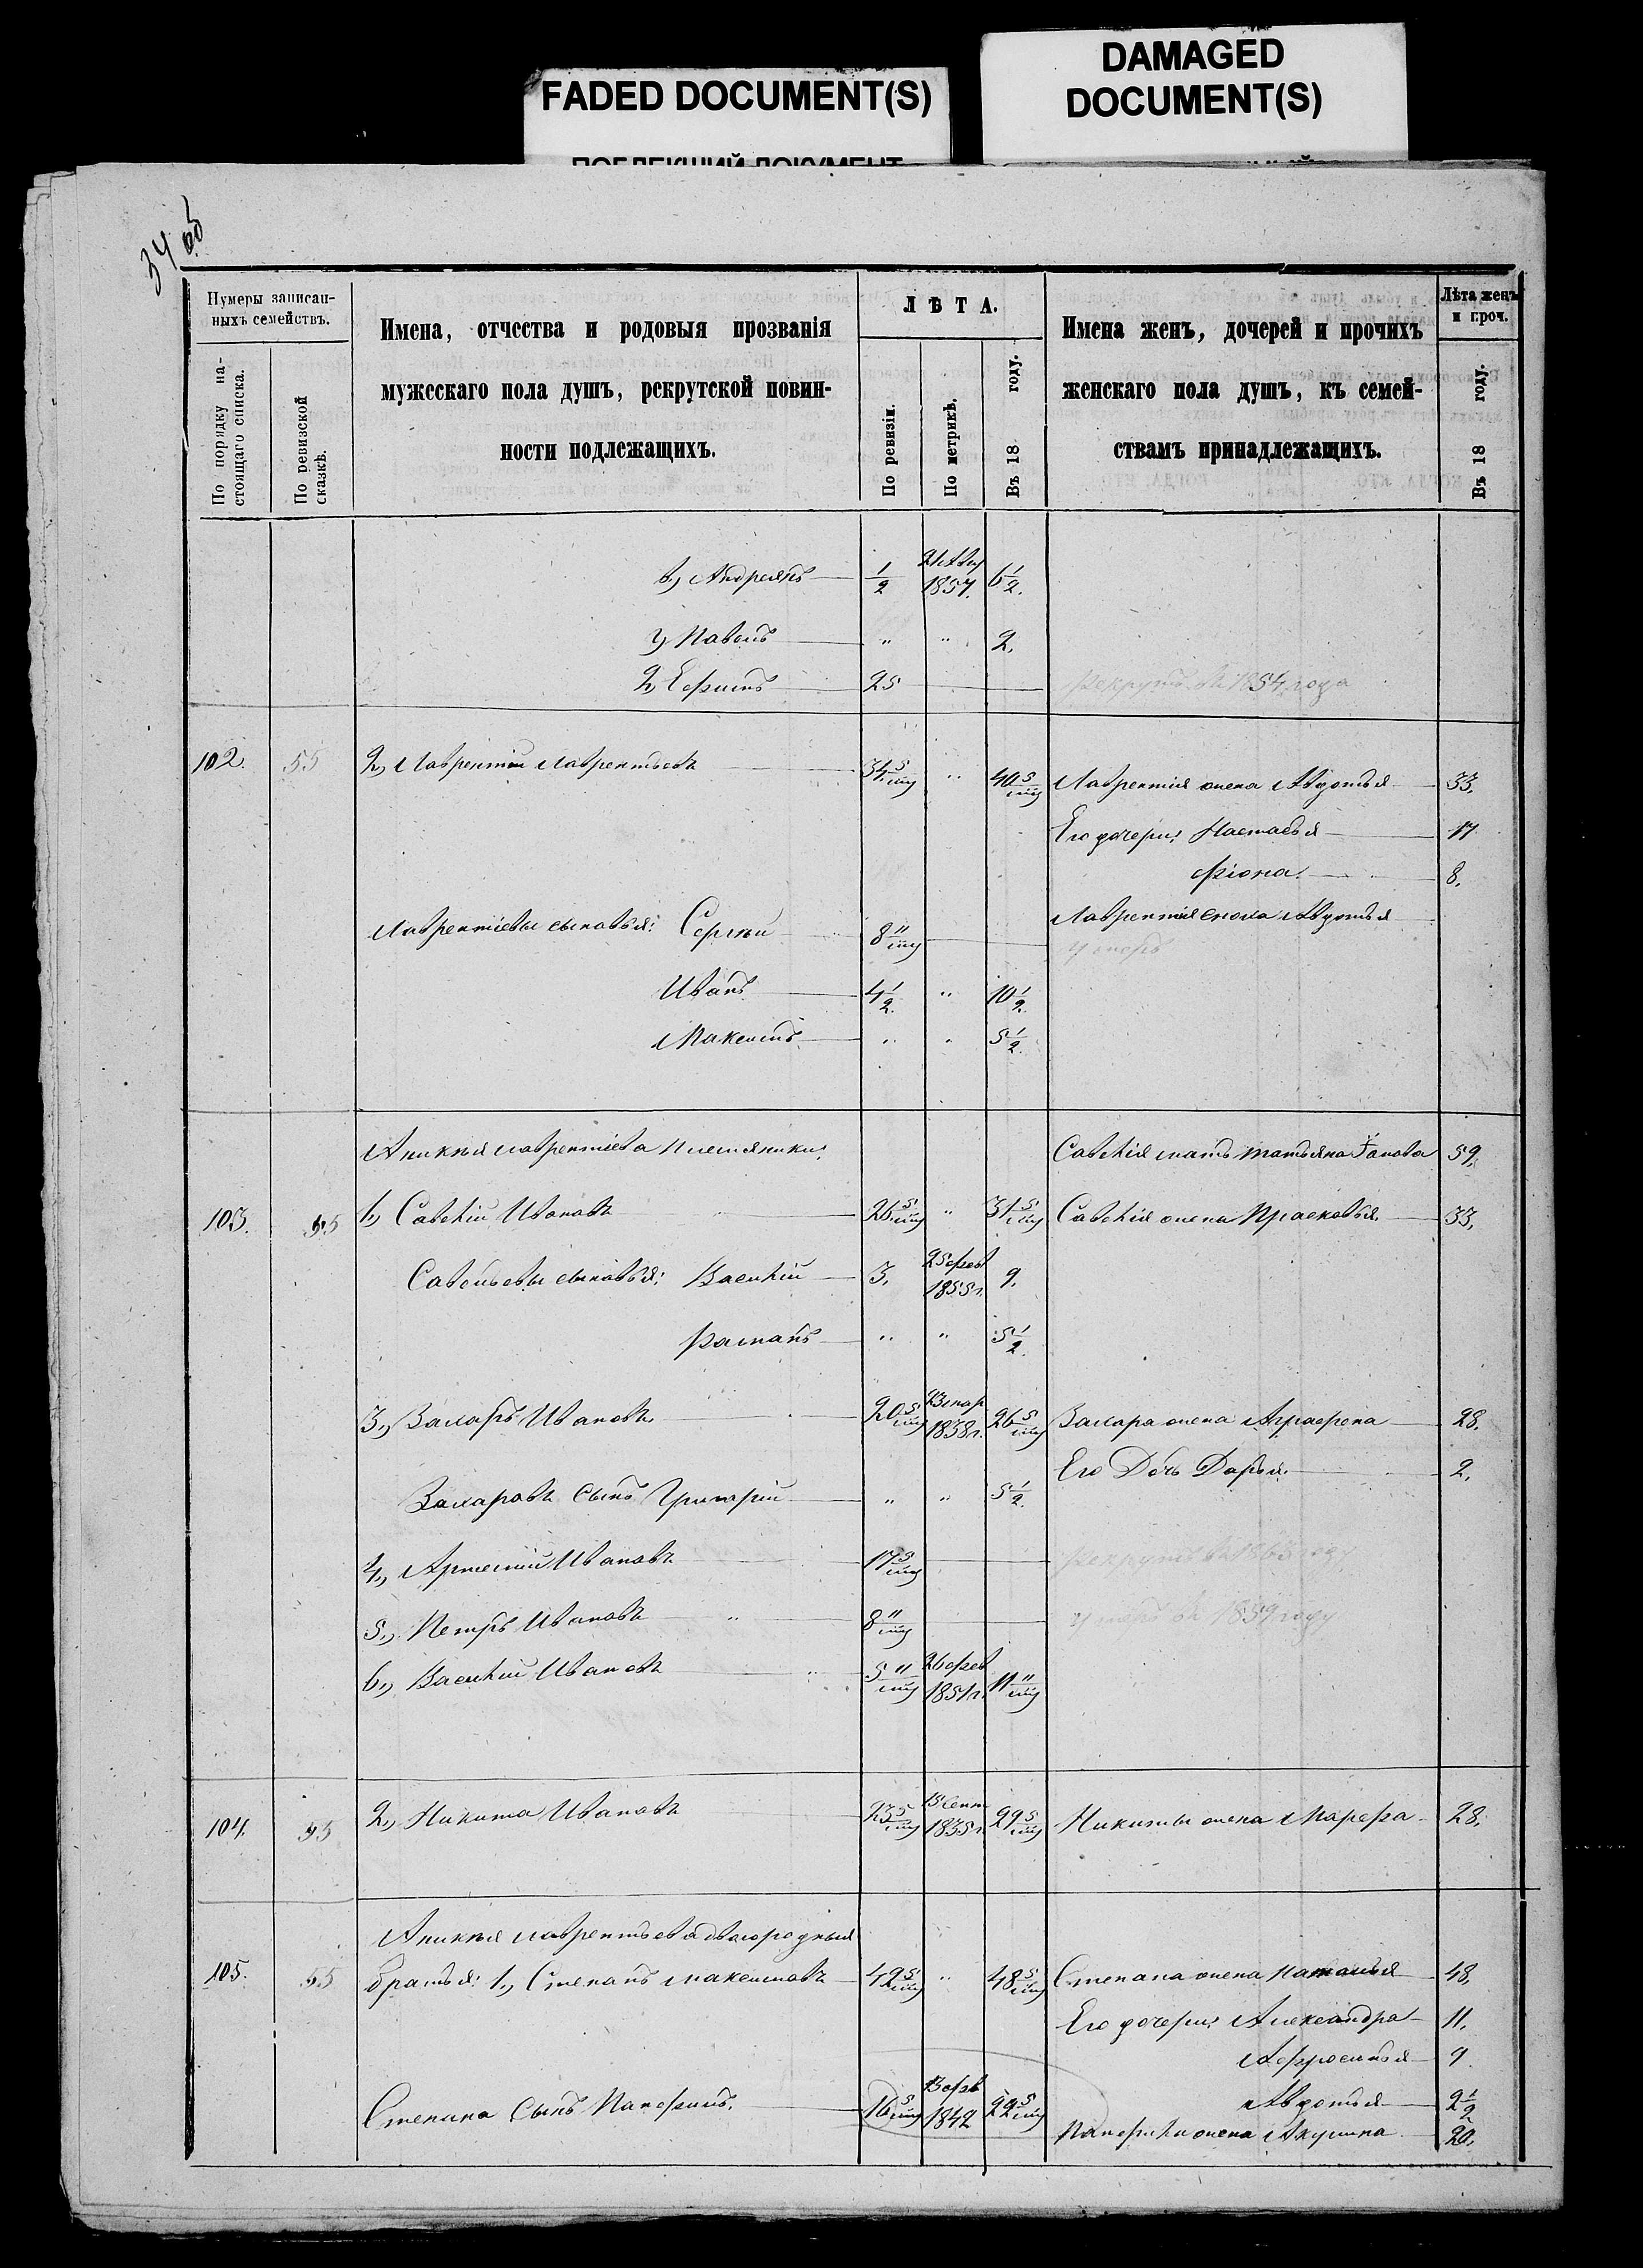 FADED DOCUMENT(S)
DAMAGED
DOCUMENT(S)
34 об
Нумеры записан-
ныхъ семействъ.
По порядку на-
стоящаго списка.
По ревизской
сказкѣ.
Имена, отчества и родовыя прозванія
мужескаго пола душъ, рекрутской повин-
ности подлежащихъ.
ЛѢТА.
По ревизіи.
По метрикѣ.
Въ 18 году.
Имена женъ, дочерей и прочихъ
женскаго пола душъ, къ семей-
ствамъ принадлежащихъ.
Лѣта женъ
и проч.
Въ 18 году.
в, Андреянъ 1/2 1857. 6 1/2.
г, Павелъ " " 2.
2, Ефимъ 25 рекрутъ 1854 года
102. 55 2, Лаврентій Лаврентьевъ 34 5/мц " 40 5/мц Лаврентія жена Авдотья 33.
Его дочери: Настасья 17
Фіона 8.
Лаврентіевы сыновья: Сергѣй 8 "/мц Лаврентія сноха Авдотья
умеръ
Иванъ 4 1/2. " 10 1/2.
Максимъ " " 5 1/2.
Аникѣя Лаврентіева племяники: Савелія мать Татьяна 59.
103. 55 1, Савелій Ивановъ 26 5/мц " 31 5/мц Савелія жена Прасковья 33.
Савельевы сыновья: Василій 3. 25 фев 1855 г. 9.
Раманъ " " 5 1/2.
3, Захаръ Ивановъ 20 5/мц 23 мар 1838 г. 26 5/мц Захара жена Аграфена 28.
Его Дочь Дарья 2.
Захаровъ сынъ Григорій " " 5 1/2.
4, Артемій Ивановъ 17 5/мц рекрутъ 1863 году
5, Петръ Ивановъ " 8 "/мц умеръ въ 1859 году
6, Василій Ивановъ 5 "/мц 26 фев 1851 г. 11 "/мц
104. 55 2, Никита Ивановъ 23 5/мц Сент 1835 г. 29 5/мц Никиты жена Марфа 28.
Аникѣя Лаврентьева двоюродныя
105. 55 братья: 1, Степанъ Максимовъ 42 5/мц " 48 5/мц Степана жена Наталья 48.
Его дочери: Александра 11.
Афросинья 9
Авдотья 2 1/2
Степана сынъ Панфилъ. 16 5/мц фев 1842 22 5/мц Панфила жена Акулина 20.